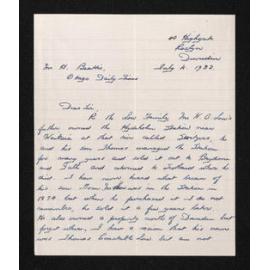 40 Highgate
Roslyn
Dunedin
July 4. 1932.
Mr H. Beattie,
Otago Daily Times
Dear Sir,
Re the Low Family, Mr H. O. Low's
father owned the Station near
at that time called and
his son Thomas managed the Station
for many years and sold it out to
and and returned to Scotland where he
died. I have never heard what became of
his son was in the Station in
1874 but where he purchased it I do not
remember, he sold it a few years later.
He also owned a property north of Dunedin but
forget where, I have a notion that his name
was Thomas Low but am not